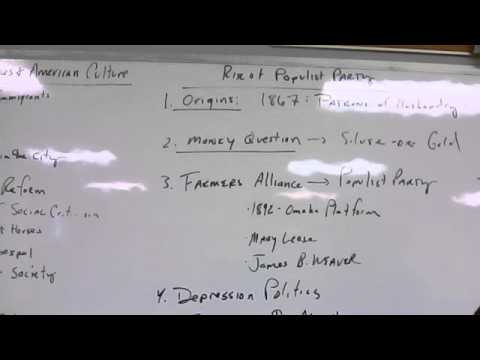 & American Culture
Immigrants
in the City
Reform
Social
Houses
Gospel
Society
Rise of Populist Party
1. Origins: 1867: Patrons of Husbandry
2. Money Question → Silver Gold
3. Farmers Alliance → Populist Party
· 1892 - Omaha Platform
· Mary Lease
· James B. Weaver
4. Depression Politics